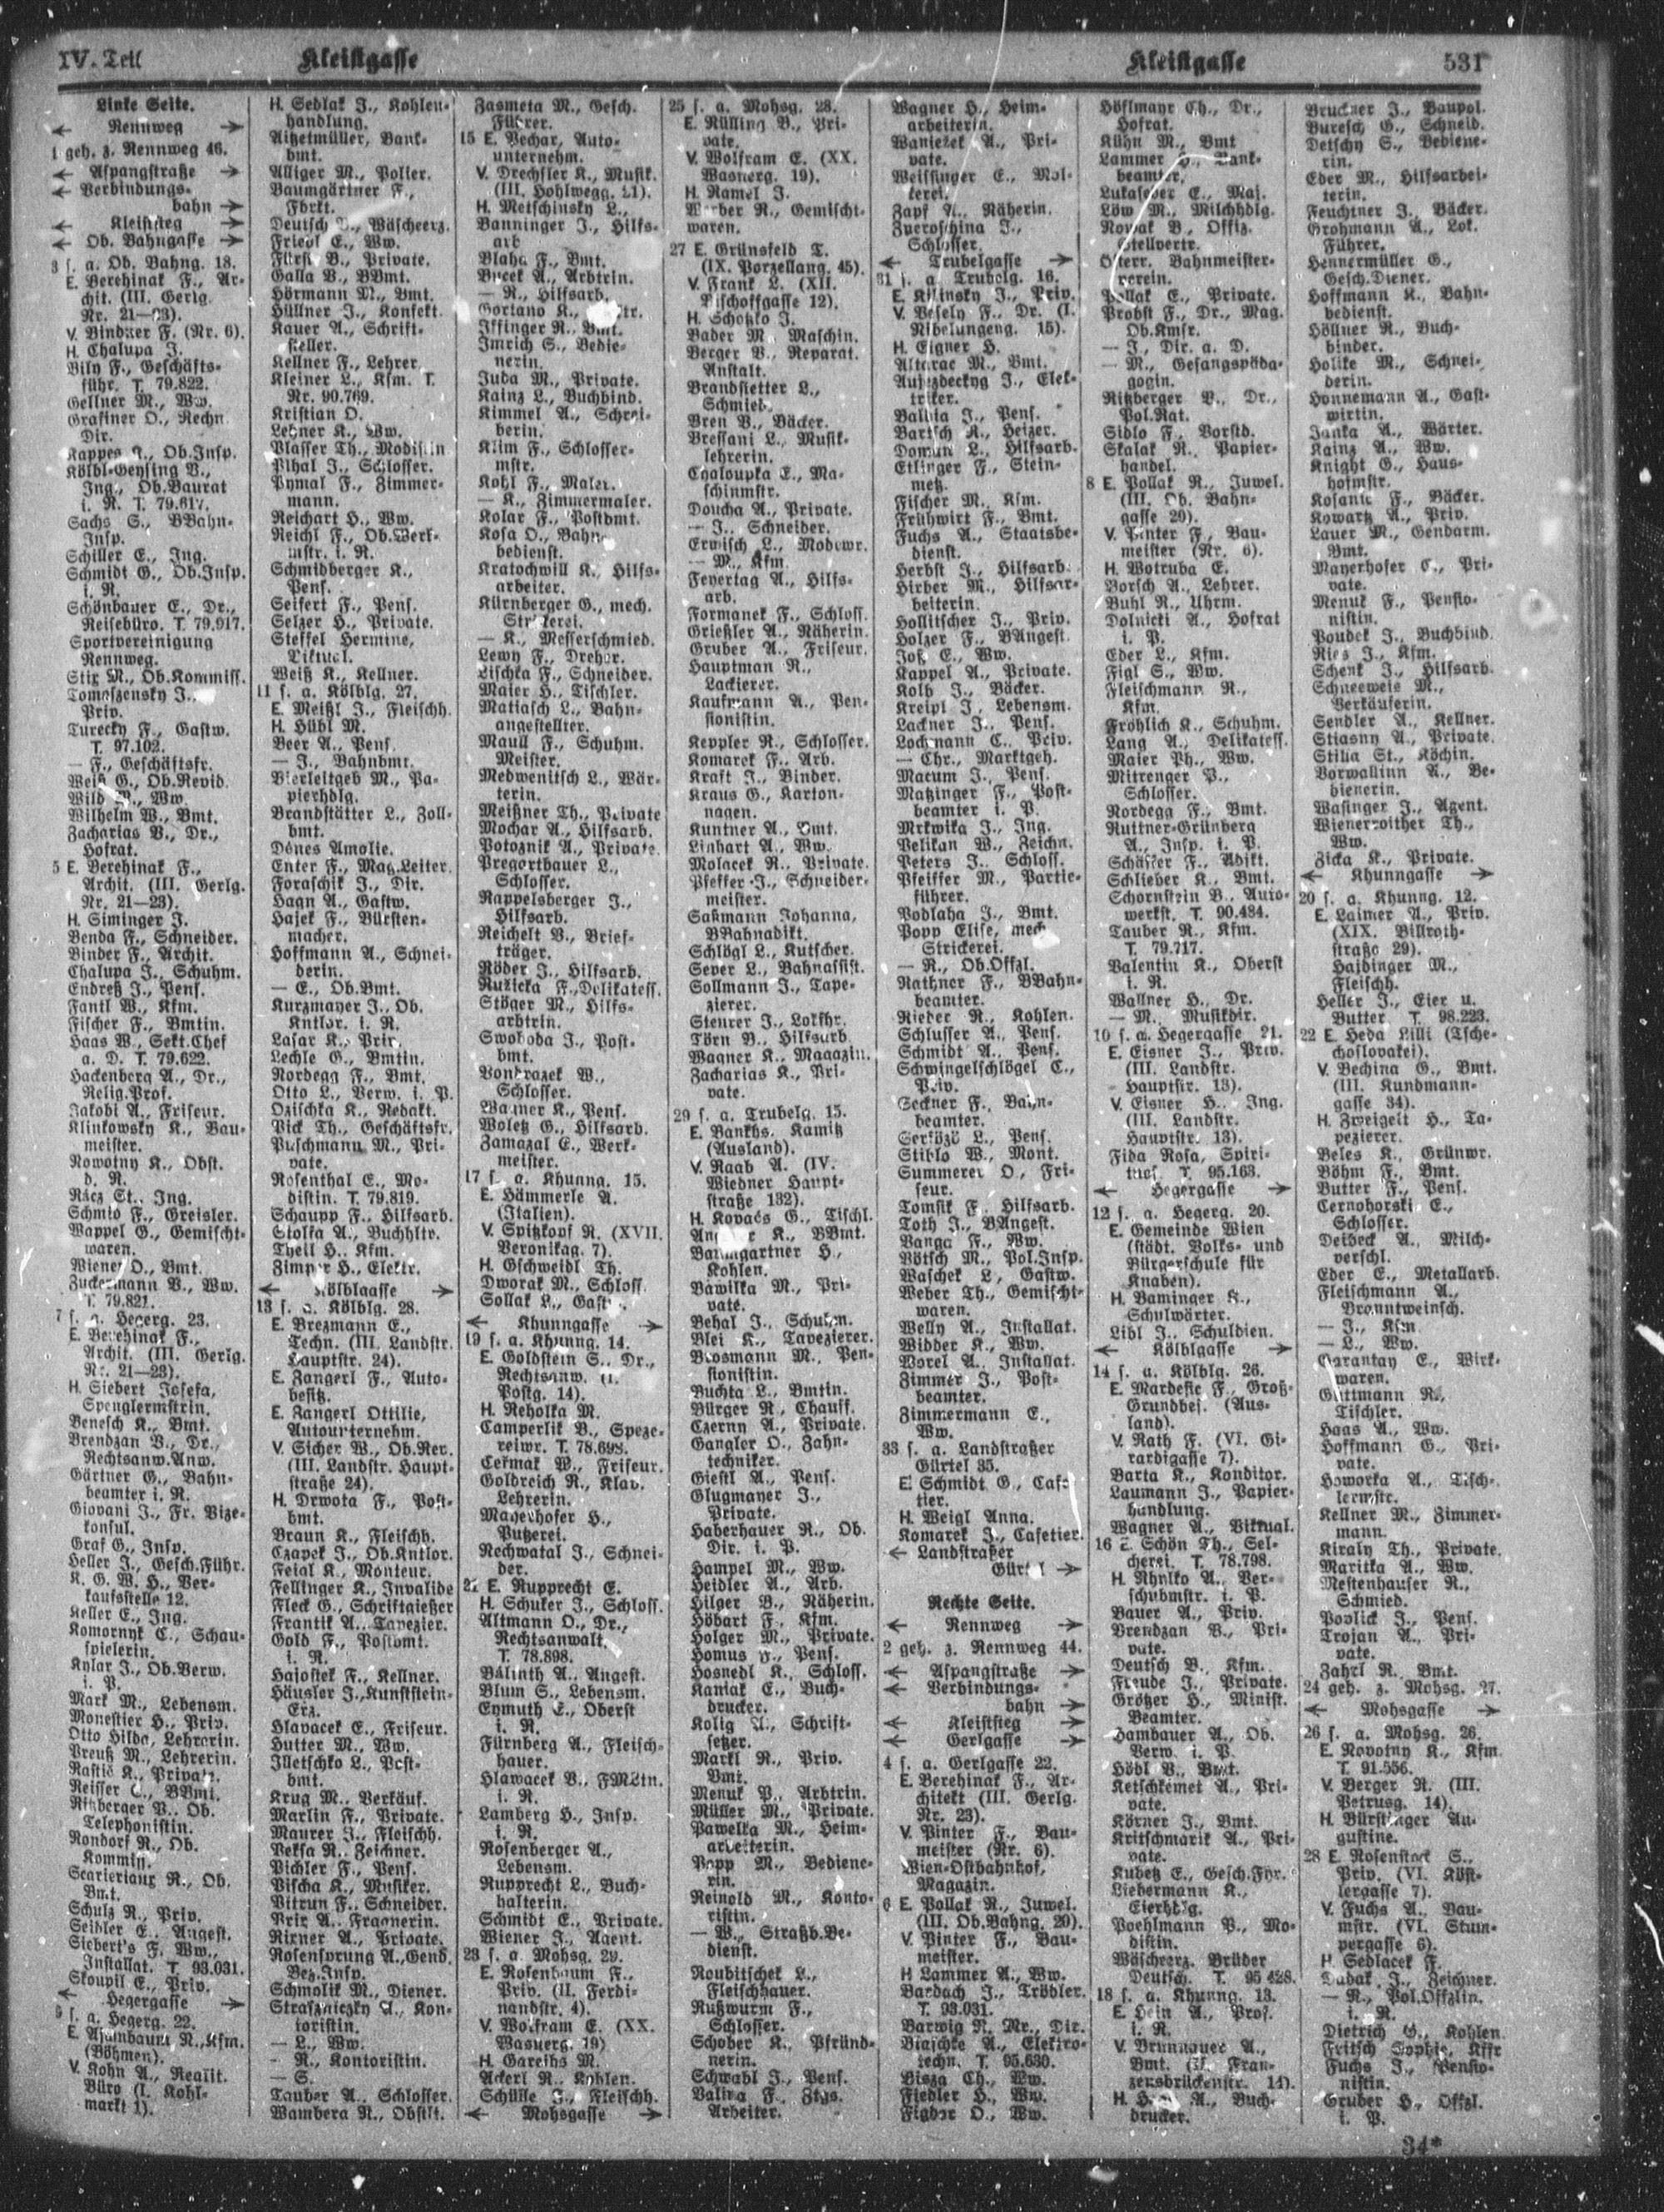 IV. Teil
Kleistgasse
Kleistgasse
531
Linke Seite.
← Rennweg →
1 geh. z. Rennweg 46.
← Aspangstraße →
← Verbindungs-
bahn →
← Kleiststeg →
← Ob. Bahngasse →
3 s. a. Ob. Bahng. 18.
E. Berehinak F., Ar-
chit. (III. Gerlg.
Nr. 21—23).
V. Bindner F. (Nr. 6).
H. Chalupa J.
Bily F., Geschäfts-
führ. T. 79.822.
Gellner M., Ww.
Grasiner O., Rechn.
Dir.
Kappes A., Ob.Insp.
Kölbl-Geysing V.,
Ing., Ob.Baurat
i. R. T. 79.617.
Sachs S., BBahn-
Insp.
Schiller E., Ing.
Schmidt G., Ob.Insp.
i. R.
Schönbauer E., Dr.,
Reisebüro. T. 79.917.
Sportvereinigung
Rennweg.
Stix M., Ob.Kommiss.
Tomaszensky J.,
Priv.
Turecky F., Gastw.
T. 97.102.
— F., Geschäftsfr.
Weiß G., Ob.Revid.
Wild, Ww.
Wilhelm W., Bmt.
Zacharias V., Dr.,
Hofrat.
5 E. Berehinak F.,
Archit. (III. Gerlg.
Nr. 21—23).
H. Siminger J.
Benda F., Schneider.
Binder F., Archit.
Chalupa J., Schuhm.
Endreß J., Pens.
Fantl W., Kfm.
Fischer F., Bmtin.
Haas W., Sekt.Chef
a. D. T. 79.622.
Hackenberg A., Dr.,
Relig.Prof.
Jakobi A., Friseur.
Klinkowsky K., Bau-
meister.
Nowotny K., Obst.
d. R.
Rácz St., Ing.
Schmid F., Greisler.
Wappel G., Gemischt-
waren.
Wiener O., Bmt.
Zuckermann B., Ww.
T. 79.821.
7 s. a. Hegerg. 23.
E. Berehinak F.,
Archit. (III. Gerlg.
Nr. 21—23).
H. Siebert Josefa,
Spenglermstrin.
Benesch K., Bmt.
Brendzan B., Dr.,
Rechtsanw.Anw.
Gärtner G., Bahn-
beamter i. R.
Giovani J., Fr. Vize-
konsul.
Graf G., Insp.
Heller J., Gesch.Führ.
K. G. W. H., Ver-
kaufsstelle 12.
Keller E., Ing.
Komornyk C., Schau-
spielerin.
Kylar J., Ob.Verw.
i. P.
Mark M., Lebensm.
Monestier H., Priv.
Otto Hilda, Lehrerin.
Preuß M., Lehrerin.
Rastić K., Private.
Reisser C., BBmt.
Ritzberger V., Ob.
Telephonistin.
Rondorf R., Ob.
Kommiss.
Scarieriaux R., Ob.
Bmt.
Schulz R., Priv.
Seidler E., Angest.
Siebert's F. Ww.,
Installat. T. 93.031.
Skoupil E., Priv.
← Hegergasse →
9 s. a. Hegerg. 22.
E. R., Kfm.
(Böhmen).
V. Kohn A., Realit.
Büro (I. Kohl-
markt 1).
H. Sedlak J., Kohlen-
handlung.
Aitzetmüller, Bank-
bmt.
Alliger M., Polier.
Baumgärtner F.,
Fbrkt.
Deutsch, Wäscheerz.
Friedl E., Ww.
Fürst B., Private.
Galla V., BBmt.
Hörmann M., Bmt.
Hüllner J., Konfekt.
Kauer A., Schrift-
steller.
Kellner F., Lehrer.
Kleiner L., Kfm. T.
Nr. 90.769.
Kristian O.
Lehner K., Ww.
Plasser Th., Modistin
Plhal J., Schlosser.
Pymal F., Zimmer-
mann.
Reichart H., Ww.
Reichl F., Ob.Werk-
mstr. i. R.
Schmidberger K.,
Pens.
Seifert F., Pens.
Selzer H., Private.
Steffel Hermine,
Viktual.
Weiß K., Kellner.
11 s. a. Kölblg. 27.
E. Meißl J., Fleischh.
H. Hübl M.
Beer A., Pens.
— J., Bahnbmt.
Bierleitgeb M., Pa-
pierhdlg.
Brandstätter L., Zoll-
bmt.
Dénes Amolie.
Enter F., Mag.Leiter.
Foraschik J., Dir.
Hagn A., Gastw.
Hajek F., Bürsten-
macher.
Hoffmann A., Schnei-
derin.
— E., Ob.Bmt.
Kurzmayer J., Ob.
Kntlor. i. R.
Lasar K., Priv.
Lechle G., Bmtin.
Nordegg F., Bmt.
Otto L., Verw. i. P.
Ozischka K., Redakt.
Pick Th., Geschäftsfr.
Puschmann M., Pri-
vate.
Rosenthal E., Mo-
distin. T. 79.819.
Schaupp F., Hilfsarb.
Stolka A., Buchhltr.
Theil H., Kfm.
Zimper H., Elektr.
← Kölblgasse →
13 s. a. Kölblg. 28.
E. Brezmann E.,
Techn. (III. Landstr.
Hauptstr. 24).
E. Zangerl F., Auto-
besitz.
E. Zangerl Ottilie,
Autounternehm.
V. Sicher W., Ob.Rev.
(III. Landstr. Haupt-
straße 24).
H. Drwota F., Post-
bmt.
Braun K., Fleischh.
Czapek J., Ob.Kntlor.
Feial K., Monteur.
Fellinger K., Invalide
Fleck G., Schriftgießer
Frantik A., Tapezier.
Gold F., Postbmt.
i. R.
Hajostek F., Kellner.
Häusler J., Kunststein-
Erz.
Hlavacek E., Friseur.
Hutter M., Ww.
Illetschko L., Post-
bmt.
Krug M., Verkäuf.
Marlin F., Private.
Maurer J., Fleischh.
Peksa R., Zeichner.
Pichler F., Pens.
Pischa K., Musiker.
Pitrun F., Schneider.
Prix A., Fragnerin.
Rixner A., Private.
Rosensprung A., Gend.
Bez.Insp.
Schmolik M., Diener.
Straszniczky A., Kon-
toristin.
— L., Ww.
— R., Kontoristin.
— S.
Tauber A., Schlosser.
Wambera R., Obstlt.
Zasmeta M., Gesch.
Führer.
15 E. Pechar, Auto-
unternehm.
V. Drechsler K., Musik.
(III. Hohlwegg. 21).
H. Metschinsky L.,
Banninger J., Hilfs-
arb
Blaha F., Bmt.
Bucek A., Arbtrin.
— R., Hilfsarb.
Gortano K.,
Iffinger R., Bmt.
Imrich S., Bedie-
nerin.
Juda M., Private.
Kainz L., Buchbind.
Kimmel A., Schrei-
berin.
Klim F., Schlosser-
mstr.
Kohl F., Maler.
— K., Zimmermaler.
Kolar F., Postbmt.
Kosa O., Bahn-
bedienst.
Kratochwill K., Hilfs-
arbeiter.
Kürnberger G., mech.
Strickerei.
— K., Messerschmied.
Lewy F., Dreher.
Lischka F., Schneider.
Maier H., Tischler.
Matiasch L., Bahn-
angestellter.
Maull F., Schuhm.
Meister.
Medwenitsch L., Wär-
terin.
Meißner Th., Private
Mochar A., Hilfsarb.
Potoznik A., Private.
Pregartbauer L.,
Schlosser.
Rappelsberger J.,
Hilfsarb.
Reichelt V., Brief-
träger.
Röder J., Hilfsarb.
Ružicka F., Delikatess.
Stöger M., Hilfs-
arbtrin.
Swoboda J., Post-
bmt.
Vondrazek W.,
Schlosser.
Wagner K., Pens.
Woletz G., Hilfsarb.
Zamazal E., Werk-
meister.
17 s. a. Khunng. 15.
E. Hämmerle A.
(Italien).
V. Spitzkopf R. (XVII.
Veronikag. 7).
H. Gschweidl Th.
Dworak M., Schloss.
Sollak L.,
← Khunngasse →
19 s. a. Khunng. 14.
E. Goldstein S., Dr.,
Rechtsanw. (I.
Postg. 14).
H. Reholka M.
Camperlik B., Speze-
reiwr. T. 78.698.
Čeřmak W., Friseur.
Goldreich R., Klav.
Lehrerin.
Mayerhofer H.,
Putzerei.
Rechwatal J., Schnei-
der.
21 E. Rupprecht E.
H. Schuker J., Schloss.
Altmann O., Dr.,
Rechtsanwalt,
T. 78.898.
Bálinth A., Angest.
Blum S., Lebensm.
Eymuth E., Oberst
i. R.
Fürnberg A., Fleisch-
hauer.
Hlawacek V., FMLtn.
i. R.
Lamberg H., Insp.
i. R.
Rosenberger A.,
Lebensm.
Rupprecht L., Buch-
halterin.
Schmidt E., Private.
Wiener J., Agent.
23 s. a. Mohsg. 29.
E. Rosenbaum F.,
Priv. (II. Ferdi-
nandstr. 4).
V. Wolfram E. (XX.
Wasnerg. 19)
H. Gareihs M.
Ackerl R., Kohlen.
Schülle J., Fleischh.
← Mohsgasse →
25 s. a. Mohsg. 28.
E. Rülling B., Pri-
vate.
V. Wolfram E. (XX.
Wasnerg. 19).
H. Ramel J.
Werber R., Gemischt-
waren.
27 E. Grünsfeld T.
(IX. Porzellang. 45).
V. Frank L. (XII.
Bischoffgasse 12).
H. Schotzko J.
Bader M., Maschin.
Berger V., Reparat.
Anstalt.
Brandstetter L.,
Schmied.
Bren V., Bäcker.
Bressani L., Musik-
lehrerin.
Chaloupka E., Ma-
schinmstr.
Doucha A., Private.
— J., Schneider.
Erwisch L., Modewr.
— M., Kfm.
Feyertag A., Hilfs-
arb.
Formanek F., Schloss.
Grießler A., Näherin.
Gruber A., Friseur.
Hauptman R.,
Lackierer.
Kaufmann A., Pen-
sionistin.
Keppler R., Schlosser.
Komarek F., Arb.
Kraft J., Binder.
Kraus G., Karton-
nagen.
Kuntner A., Bmt.
Linhart A., Ww.
Molacek R., Private.
Pfeffer J., Schneider-
meister.
Saßmann Johanna,
BBahnadjkt.
Schlögl L., Kutscher.
Sever L., Bahnassist.
Sollmann J., Tape-
zierer.
Steurer J., Lokfhr.
Törn B., Hilfsarb.
Wagner K., Magazin.
Zacharias K., Pri-
vate.
29 s. a. Trubelg. 15.
E. Bankhs. Kamitz
(Ausland).
V. Raab A. (IV.
Wiedner Haupt-
straße 132).
H. Kovacs G., Tischl.
K., BBmt.
Baumgartner H.,
Kohlen.
Bawilka M., Pri-
vate.
Behal J., Schuhm.
Blei K., Tapezierer.
Brosmann M., Pen-
sionistin.
Buchta L., Bmtin.
Bürger R., Chauff.
Czerny A., Private.
Gangler O., Zahn-
techniker.
Giestl A., Pens.
Glugmayer J.,
Private.
Haberhauer R., Ob.
Dir. i. P.
Hampel M., Ww.
Heidler A., Arb.
Hilger B., Näherin.
Höbart F., Kfm.
Holger M., Private.
Homus, Pens.
Hosnedl K., Schloss.
Kaniak E., Buch-
drucker.
Kolig A., Schrift-
setzer.
Markl R., Priv.
Bmt.
Menuk P., Arbtrin.
Müller M., Private.
Pawelka M., Heim-
arbeiterin.
Popp M., Bediene-
rin.
Reinold M., Konto-
ristin.
— W., Straßb.Be-
dienst.
Roubitschek L.,
Fleischhauer.
Rußwurm F.,
Schlosser.
Schober K., Pfründ-
nerin.
Schwahl J., Pens.
F., Zigs.
Arbeiter.
Wagner H., Heim-
arbeiterin.
Waniežek A., Pri-
vate.
Weissinger E., Mol-
kerei.
Zapf A., Näherin.
Zveroschina J.,
Schlosser.
← Trubelgasse →
31 s. a. Trubelg. 16.
E. Kilinsky J., Priv.
V. Vesely F., Dr. (I.
Nibelungeng. 15).
H. Eigner H.
Altarac M., Bmt.
Aujezdeckyg J., Elek-
triker.
Balbia J., Pens.
Bartsch K., Heizer.
Doman L., Hilfsarb.
Etlinger F., Stein-
metz.
Fischer M., Kfm.
Frühwirt F., Bmt.
Fuchs A., Staatsbe-
dienst.
Herbst J., Hilfsarb.
Hirber M., Hilfsar-
beiterin.
Hollitscher J., Priv.
Holzer F., BAngest.
Joß E., Ww.
Kappel A., Private.
Kolb J., Bäcker.
Kreipl J., Lebensm.
Lackner J., Pens.
Lochmann C., Priv.
— Chr., Marktgeh.
Macum J., Pens.
Matzinger F., Post-
beamter i. P.
Mrkwika J., Ing.
Pelikan W., Zeichn.
Peters J., Schloss.
Pfeiffer M., Partie-
führer.
Podlaha J., Bmt.
Popp Elise, mech.
Strickerei.
— R., Ob.Offzl.
Rathner F., BBahn-
beamter.
Rieder R., Kohlen.
Schlusser A., Pens.
Schmidt A., Pens.
Schwingelschlögel C.,
Priv.
Seckner F., Bahn-
beamter.
L., Pens.
Stiblo W., Mont.
Summerer O., Fri-
seur.
Tomsik F., Hilfsarb.
Toth J., BAngest.
Banga F., Ww.
Pötsch M., Pol.Insp.
Waschek L., Gastw.
Weber Th., Gemischt-
waren.
Welly A., Installat.
Widder K., Ww.
Worel A., Installat.
Zimmer J., Post-
beamter.
Zimmermann E.,
Ww.
33 s. a. Landstraßer
Gürtel 35.
E. Schmidt G., Cafe-
tier.
H. Weigl Anna.
Komarek J., Cafetier.
← Landstraßer
Gürtel →
Rechte Seite.
← Rennweg →
2 geh. z. Rennweg 44.
← Aspangstraße →
← Verbindungs-
bahn →
← Kleiststieg →
← Gerlgasse →
4 s. a. Gerlgasse 22.
E. Berehinak F., Ar-
chitekt (III. Gerlg.
Nr. 23).
V. Pinter F., Bau-
meister (Nr. 6).
Wien-Ostbahnhof,
Magazin.
6 E. Pollak R., Juwel.
(III. Ob.Bahng. 20).
V. Pinter F., Bau-
meister.
H Lammer A., Ww.
Bardach J., Trödler.
T. 93.031.
Barwig R. Mr., Dir.
Blaschke A., Elektro-
techn. T. 95.630.
Bisza Ch., Ww.
Fiedler H., Ww.
Figdor O., Ww.
Höflmayr Ch., Dr.,
Hofrat.
Kühn M., Bmt
Lammer, Bank-
beamter.
Lukaseder E., Maj.
Löw M., Milchhdlg.
Nowak B., Offiz.
Stellvertr.
Österr. Bahnmeister-
verein.
Pollak E., Private.
Probst F., Dr., Mag.
Ob.Kmsr.
— J., Dir. a. D.
— M., Gesangspäda-
gogin.
Ritzberger V., Dr.,
Pol.Rat.
Sidlo F., Vorstd.
Skalak R., Papier-
handel.
8 E. Pollak R., Juwel.
(III. Ob. Bahn-
gasse 20).
V. Pinter F., Bau-
meister (Nr. 6).
H. Wotruba E.
Borsch A., Lehrer.
Buhl R., Uhrm.
Dolnicki A., Hofrat
i. P.
Eder L., Kfm.
Figl S., Ww.
Fleischmann R.,
Kfm.
Fröhlich K., Schuhm.
Lang A., Delikatess.
Maier Ph., Ww.
Mitrenger B.,
Schlosser.
Nordegg F., Bmt.
Ruttner-Grünberg
A., Insp. i. P.
Schäffer F., Adjkt.
Schlieber K., Bmt.
Schornstein B., Auto-
werkst. T. 90.484.
Tauber R., Kfm.
T. 79.717.
Valentin K., Oberst
i. R.
Wallner H., Dr.
— M., Musikdir.
10 s. a. Hegergasse 21.
E. Eisner J., Priv.
(III. Landstr.
Hauptstr. 13).
V. Eisner H., Ing.
(III. Landstr.
Hauptstr. 13).
Fida Rosa, Spiri-
tuos. T. 95.163.
← Hegergasse →
12 s. a. Hegerg. 20.
E. Gemeinde Wien
(städt. Volks- und
Bürgerschule für
Knaben).
H. Baminger K.,
Schulwärter.
Libl J., Schuldien.
← Kölblgasse →
14 s. a. Kölblg. 26.
E. Mardesic F., Groß-
Grundbes. (Aus-
land).
V. Rath F. (VI. Gi-
rardigasse 7).
Barta K., Konditor.
Laumann J., Papier-
handlung.
Wagner A., Viktual.
16 E. Schön Th., Sel-
cherei. T. 78.798.
H. Rhnlko A., Ver-
schubmstr. i. P.
Bauer A., Priv.
Brendzan B., Pri-
vate.
Deutsch B., Kfm.
Freude J., Private.
Größer H., Minist.
Beamter.
Hambauer A., Ob.
Verw. i. P.
Hödl B., Bmt.
Ketschkemet A., Pri-
vate.
Körner J., Bmt.
Kritschmarik A., Pri-
vate.
Kudetz E., Gesch.Fhr.
Liebermann K.,
Eierhdlg.
Poehlmann P., Mo-
distin.
Wäscheerz. Brüder
Deutsch. T. 95 428.
18 s. a. Khunng. 13.
E. Hein A., Prof.
i. R.
V. Brunnauer A.,
Bmt. (Fran-
zensbrückenstr. 14).
H. A., Buch-
drucker.
Bruckner J., Baupol.
Buresch G., Schneid.
Detschy S., Bediene-
rin.
Eder M., Hilfsarbei-
terin.
Feuchtner J., Bäcker.
Grohmann A., Lok.
Führer.
Hennermüller G.,
Gesch.Diener.
Hoffmann K., Bahn-
bedienst.
Höllner R., Buch-
binder.
Holike M., Schnei-
derin.
Honnemann A., Gast-
wirtin.
Janka A., Wärter.
Kainz A., Ww.
Knight G., Haus-
hofmstr.
Kosanic F., Bäcker.
Kowartz A., Priv.
Lauer M., Gendarm.
Bmt.
Mayerhofer C., Pri-
vate.
Menuk F., Pensio-
nistin.
Poudek J., Buchbind.
Ries J., Kfm.
Schenk J., Hilfsarb.
Schneeweis M.,
Verkäuferin.
Sendler A., Kellner.
Stiasny A., Private.
Stilia St., Köchin.
Vorwallinn A., Be-
dienerin.
Wasinger J., Agent.
Wienerroither Th.,
Ww.
Zicka K., Private.
← Khunngasse →
20 s. a. Khunng. 12.
E. Laimer A., Priv.
(XIX. Billroth-
straße 29).
Haidinger M.,
Fleischh.
Heller J., Eier u.
Butter T. 98.223.
22 E. Heda Lilli (Tsche-
choslovakei).
V. Bechina G., Bmt.
(III. Kundmann-
gasse 34).
H. Zweigelt H., Ta-
pezierer.
Beles K., Grünwr.
Böhm F., Bmt.
Butter F., Pens.
Černohorski E.,
Schlosser.
Deideck A., Milch-
verschl.
Eder E., Metallarb.
Fleischmann A.,
Branntweinsch.
— J., Kfm
— L., Ww.
Garantay E., Wirk-
waren.
Guttmann R.,
Tischler.
Haas A., Ww.
Hoffmann G., Pri-
vate.
Howorka A., Tisch-
lermstr.
Kellner M., Zimmer-
mann.
Kiraly Th., Private.
Maritka A., Ww.
Mestenhauser R.,
Schmied.
Povlick J., Pens.
Trojan A., Pri-
vate.
Zahrl R., Bmt.
24 geh. z. Mohsg. 27.
← Mohsgasse →
26 s. a. Mohsg. 26.
E. Novotny K., Kfm.
T. 91.556.
V. Berger R. (III.
Petrusg. 14).
H. Bürstinger Au-
gustine.
28 E. Rosenstock S.,
Priv. (VI. Köst-
lergasse 7).
V. Fuchs A., Bau-
mstr. (VI. Stum-
pergasse 6).
H. Sedlacek F.
Dudak J., Zeichner.
— R., Pol.Offzlin.
i. R.
Dietrich G., Kohlen.
Fritsch Sophie, Kffr
Fuchs J., Pensio-
nistin.
Gruber H., Offzl.
i. P.
34*